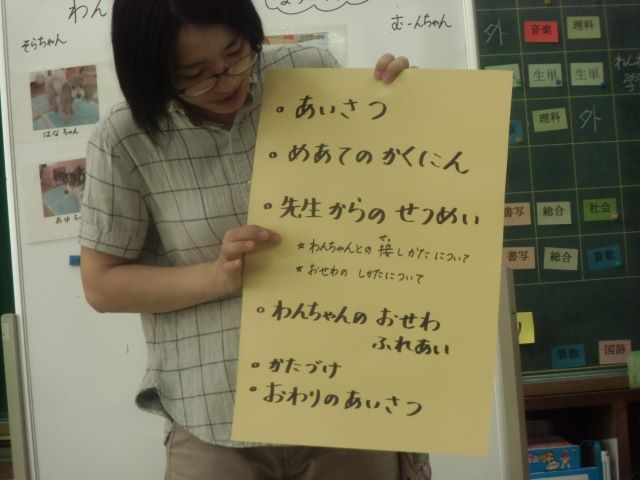 わん
そらちゃん
むーんちゃん
はなちゃん
・あいさつ
・めあてのかくにん
・先生からのせつめい
★わんちゃんとの接しかたについて
せっ
★おせわのしかたについて
・わんちゃんのおせわ
ふれあい
・かたづけ
・おわりのあいさつ
外 音楽 理科
生単 生単
理科 外
書写 総合 社会
書写 総合 算数
算数 国語